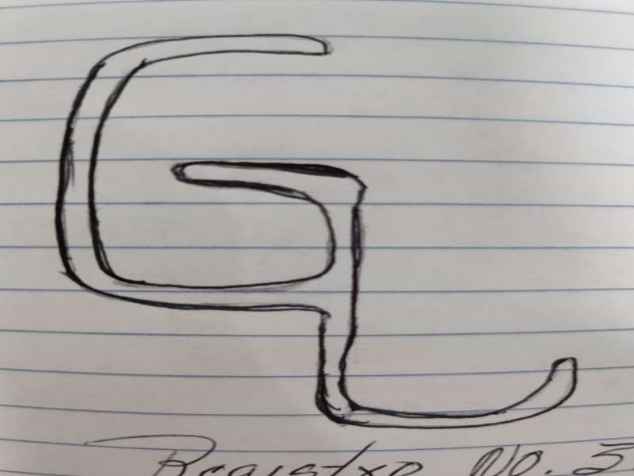 GL
Registro No. 5